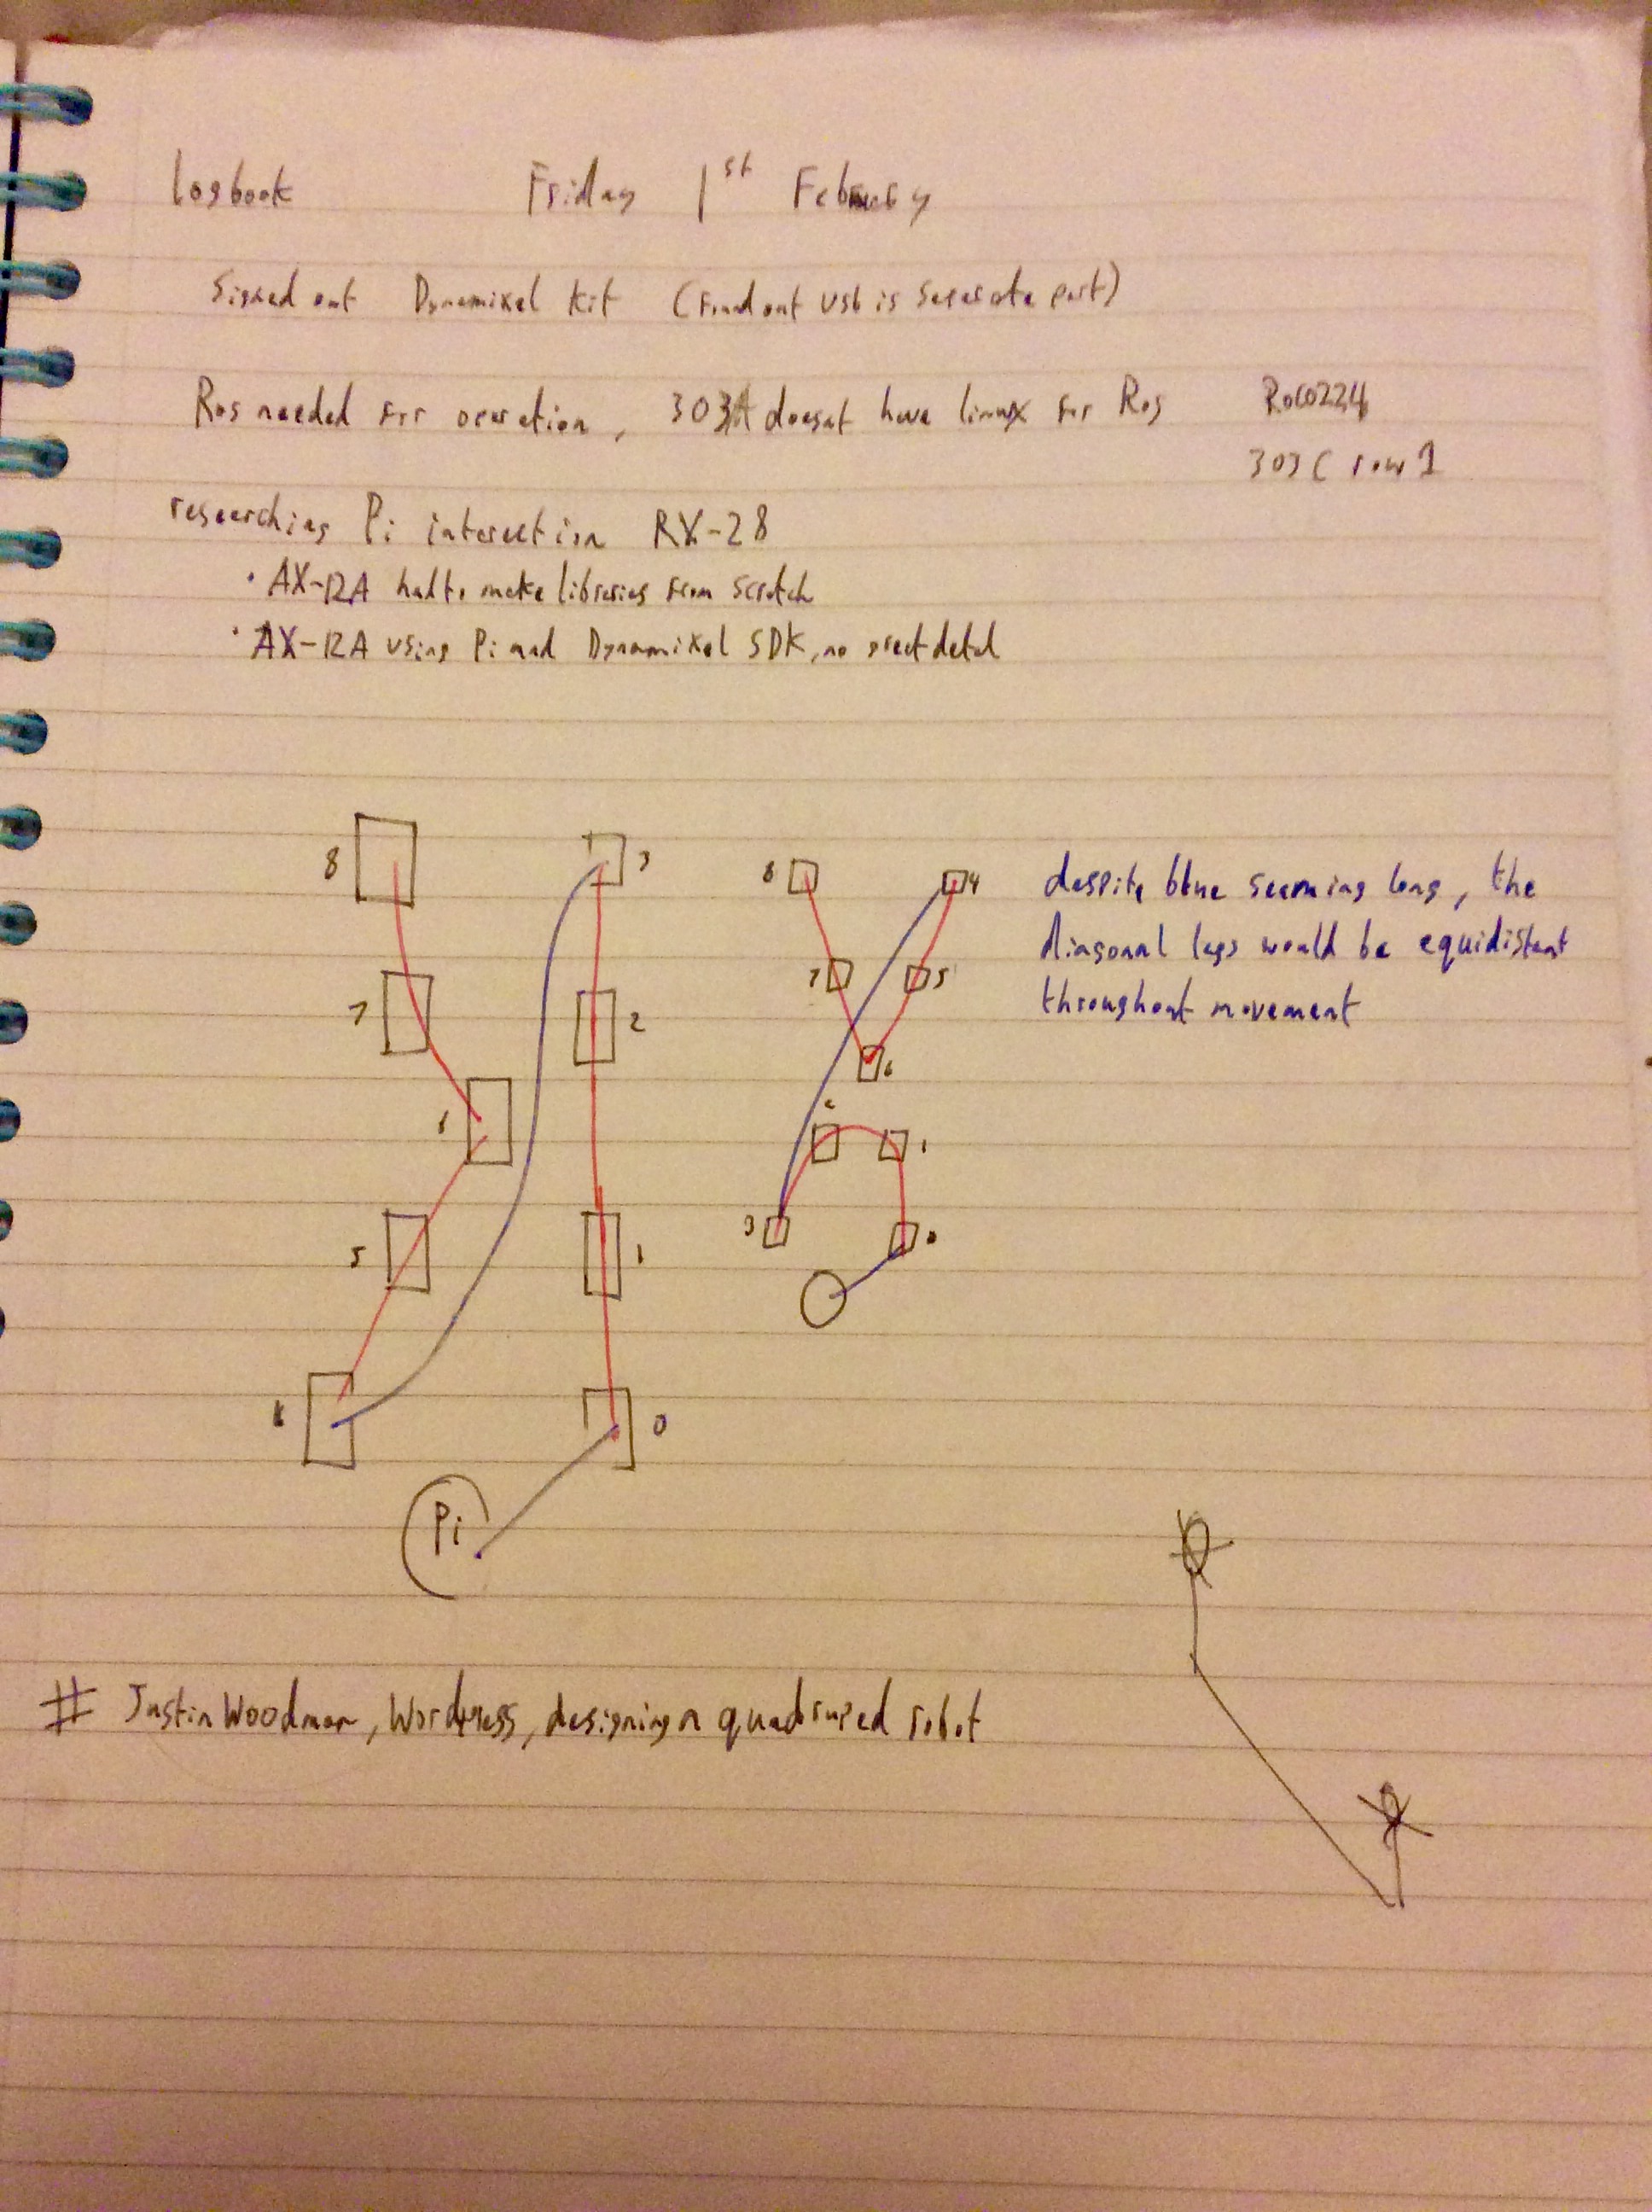 Logbook Friday 1st February
Signed out Dynamixel Kit (Found out USB is seperate part)
Ros needed for operation, 303A doesnt have linux for Ros Roco224
303C row 1
researching Pi interaction RX-28
• AX-12A had to make libraries from scratch
• AX-12A using Pi and Dynamixel SDK, no great detail
8 3 8 4
despite blue seeming long, the
diagonal legs would be equidistant
throughout movement
7 5
7 2
6
6 2 1
5 1 3 0
4 0
Pi
# Justin Woodman, Wordpress, designing a quadruped robot